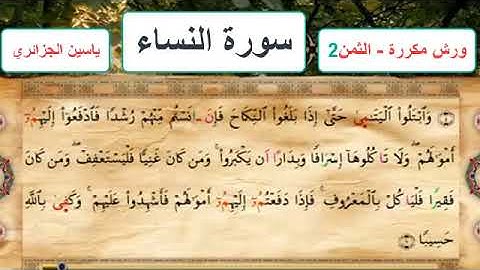 ورش مكررة - الثمن2
سورة النساء
ياسين الجزائري
وَابْتَلُوا۟ الْيَتَٰمَىٰ حَتَّىٰٓ إِذَا بَلَغُوا۟ النِّكَاحَ فَإِنَ ـ انَسْتُم مِّنْهُمْ رُشْدًا فَادْفَعُوٓا۟ إِلَيْهِمُۥٓ
أَمْوَٰلَهُمْ وَلَا تَاكُلُوهَآ إِسْرَافًا وَبِدَارًا اَنْ يَّكْبَرُوا۟ وَمَن كَانَ غَنِيًّا فَلْيَسْتَعْفِفْ وَمَن كَانَ
فَقِيرًا فَلْيَاكُلْ بِالْمَعْرُوفِ فَإِذَا دَفَعْتُمُۥٓ إِلَيْهِمُۥٓ أَمْوَٰلَهُمْ فَأَشْهِدُوا۟ عَلَيْهِمْ وَكَفَىٰ بِاللَّهِ
حَسِيبًا